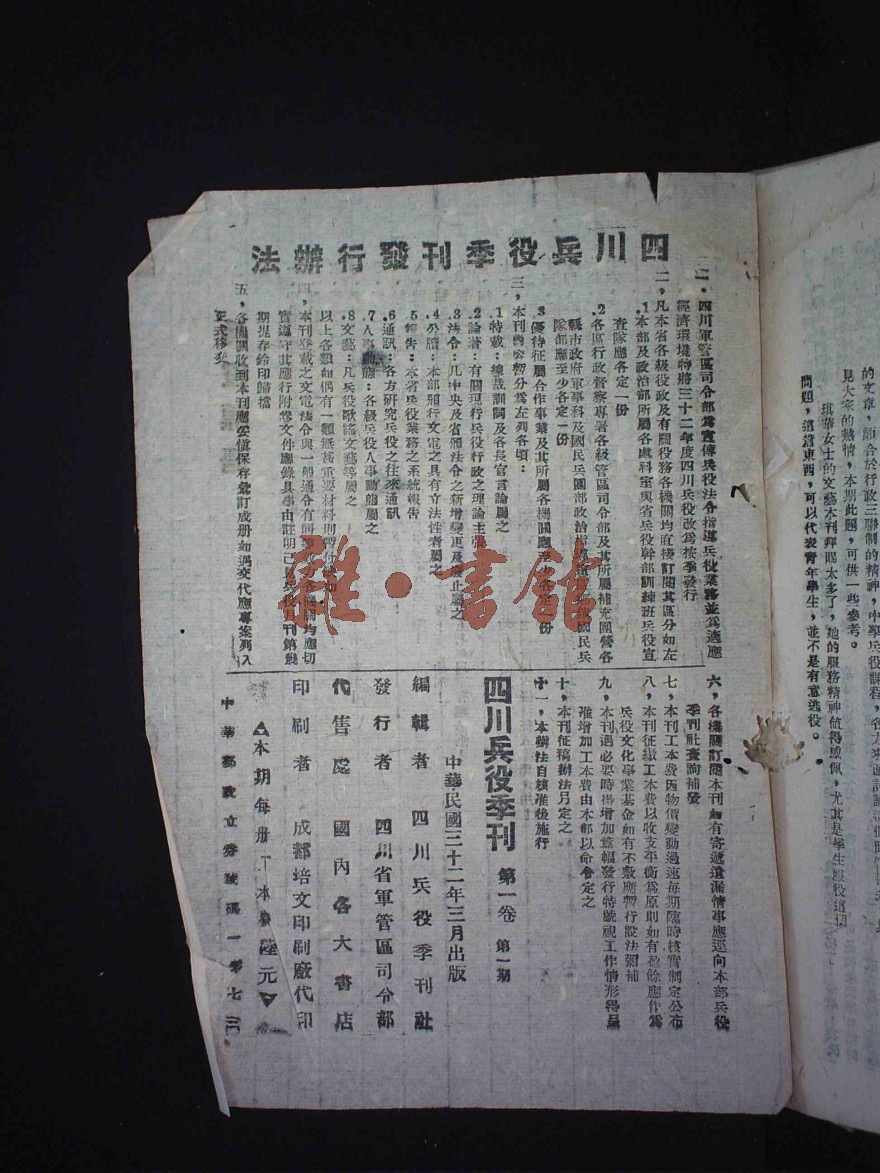 四川兵役季刊發行辦法
一、四川軍管區司令部為宣傳兵役法令指導兵役業務並為適應
經濟環境特將三十二年度四川兵役改為按季發行
二、凡本省各級役政及有關役務各機關均直接訂閱其區分如左
1.本部及政治部所屬各處科室與省兵役幹部訓練班兵役宣
查隊應各定一份
2.各區行政督察專署各級管區司令部及其所屬補充團營各
縣市政府軍事科及國民兵團部政治指導
國民兵
隊部應至少各定一份
3.優待征屬合作事業及其所屬各機關應
份
三、本刊內容暫分為左列各項:
1.特載:總裁訓詞及各長官言論屬之
2.論著:有關現行兵役行政之理論主張
3.法令:凡中央及省頒法令之新增變更及廢止屬之
4.公牘:本部頒行文電之具有立法性者屬之
5.報告:本省兵役業務之系統報告
6.通訊:各方研究兵役之往來通訊
7.人事動態:各級兵役人事動態屬之
8.文藝:凡兵役歌謠文藝等屬之
以上各類如偶有一類無甚重要材料則暫付
四、本刊登載之文電法令與一般通令有同等
各機關均應切
實遵守其應行附卷文件應錄具事由註明已見兵役月刊第幾
期提存鈐印歸檔
五、各機關收到本刊應妥慎保存彙訂成册如遇交代應專案列入
正式移交
六、各機關訂閱本刊如有寄遞遺漏情事應逕向本部兵役
季刊社查詢補發
七、本刊工本費因物價變動過速每期臨時核實制定公布
八、本刊征繳工本費以收支平衡為原則如有盈餘應作為
兵役文化事業基金如有不敷應暫行設法彌補
九、本刊遇必要時得增加篇幅發行特號視工作情形得呈
准增加工本費由本部以命令定之
十、本刊征稿辦法另定之
十一、本辦法自核准後施行
四川兵役季刊 第一卷 第一期
中華民國三十二年三月出版
編輯者 四川兵役季刊社
發行者 四川省軍管區司令部
代售處 國內各大書店
印刷者 成都培文印刷廠代印
▲本期每册工本費陸元▼
中華郵政立券號碼一零七三
的文章,頗合於行政三聯制的精神,中學兵役課程,各方來函討論
見大家的熱情,本期此題,可供一些參考。
琪華女士的文藝本刊拜賜太多了,她的服務精神值得感佩,尤其是學生服役這個
問題,這篇東西,可以代表青年學生,並不是有意逃役。
雜·書館